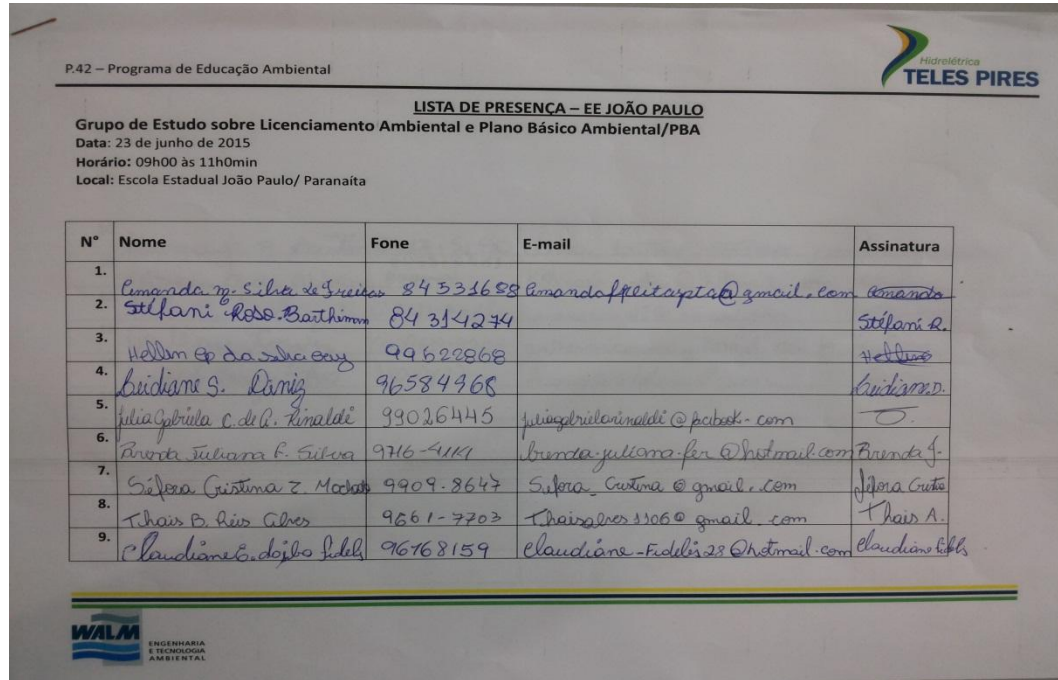 P.42 – Programa de Educação Ambiental
Hidrelétrica
TELES PIRES
LISTA DE PRESENÇA – EE JOÃO PAULO
Grupo de Estudo sobre Licenciamento Ambiental e Plano Básico Ambiental/PBA
Data: 23 de junho de 2015
Horário: 09h00 às 11h0min
Local: Escola Estadual João Paulo/ Paranaíta
N° Nome Fone E-mail Assinatura
1. Amanda m. Silva de Freitas 84531688 Amanda
2. Stéfani Rosa 84314274 Stéfani R.
3. Hellen da silva 99622868
4. Leidiane S. Daniz 96584968 Leidiane D.
5. Julia Gabriela C. de A. Rinaldi 99026445 juliagabrielarinaldi@facebook-com
6. Brenda Juliana F. Silva 9716-4114 brenda-juliana-fer@hotmail.com Brenda J.
7. Séfora Cristina Z. Machado 9909-8647 Sefora_Cristina@gmail.com Séfora
8. Thais B. Reis Alves 9661-7703 Thaisalves1106@gmail.com Thais A.
9. Claudiane fideli 96768159 claudiane-Fidelis28@hotmail.com
WALM
ENGENHARIA
E TECNOLOGIA
AMBIENTAL